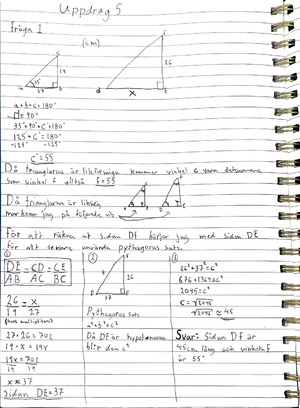 Uppdrag 5
Fråga 1
(cm)
c
19
35°
a
27
b
f
26
d
x
e
a+b+c=180°
b=90°
35°+90°+c=180°
125+c=180°
-125 -125°
c=55
Då trianglarna är likformiga kommer vinkel c vara detsamma
som vinkel f alltså f=55
Då trianglarna är
jag på följande vis
För att räkna ut sidan DF börjar jag med sidan DE
för att sedan använda pythagoras sats.
①
DE = CD = CE
AB AC BC
26 = x
19 27
27·26=702
19·x=19x
19x=702
19 19
x≈37
Sidan DE=37
②
F
26
D
37
E
Pythagoras sats
a²+b²=c²
Då DF är hypotenusan
blir den c²
③
26²+37²=c²
676+1369=c²
2045=c²
c=√2045
√2045≈45
Svar: Sidan DF är
45cm lång och vinkeln F
är 55°